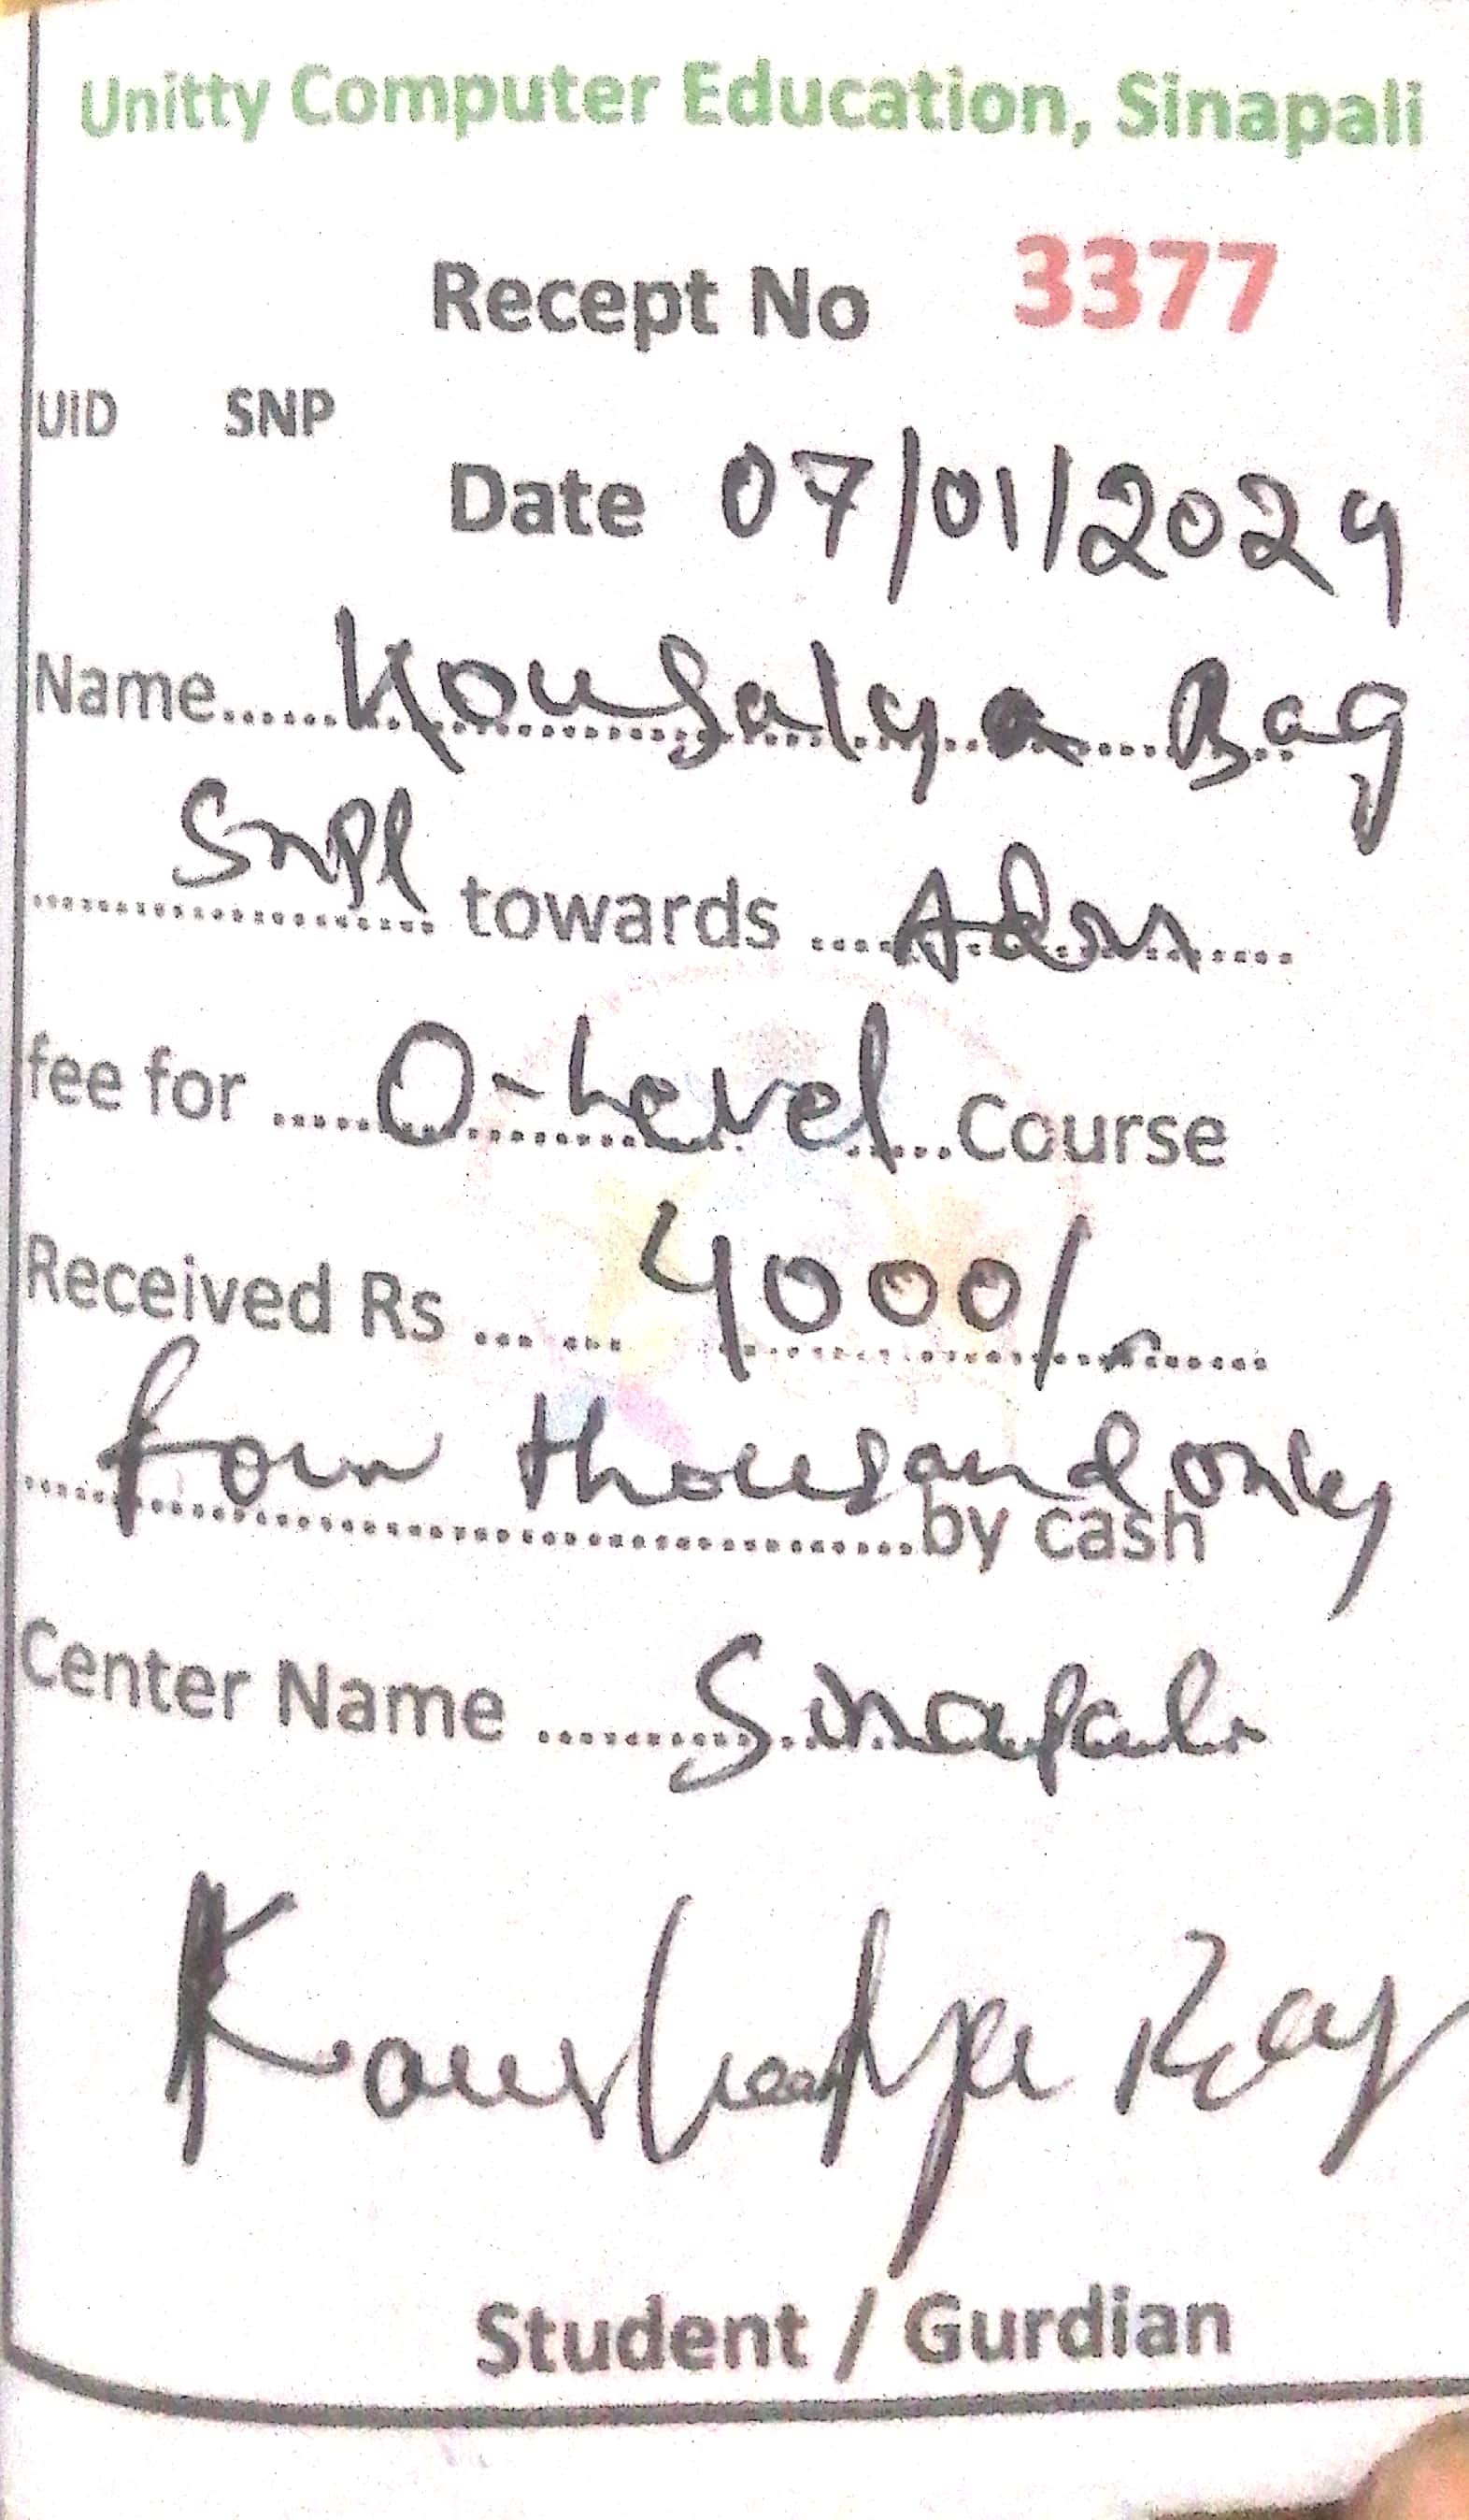 Unitty Computer Education, Sinapali
Recept No 3377
UID SNP
Date 07/01/2024
Name...... Kousalya Bag
Snpl towards .... Adm
fee for ..... O-Level Course
Received Rs ... ... 4000/-
four thousand only
by cash
Center Name ........ Sinapali
Kaushalya Bag
Student / Gurdian